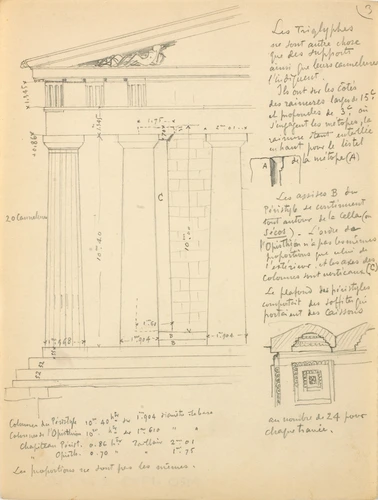 3
Les triglyphes
ne sont autre chose
que des supports
ainsi que leurs cannelures
l'indiquent.
Ils ont sur les côtés
des rainures larges 15c
et profondes de 5c où
s'engagent les métopes, la
rainure étant entaillée
en haut pour le listel
de la métope (A)
A
Les assises B du
Péristyle se continuent
tout autour de la Cella (ou
Sécos). L'ordre de
l'Opisthodome n'a pas les mêmes
proportions que celui de
l'extérieur, et les axes des
colonnes sont verticaux (C)
Le plafond des péristyles
comportait des soffites qui
portaient des caissons
au nombre de 24 pour
chaque travée.
20 Cannelures
1.75
C
10m.40
B
B
1m904
52
Colonnes du Péristyle 10m 40 htr 1m904 diamètre de base
Colonnes de l'Opisthodome 10m htr de 1m610 " "
Chapiteau Périst. 0.86 htr Tailloir 2m01
" Opisth. 0.70 " " 1m 75
Les proportions ne sont pas les mêmes.